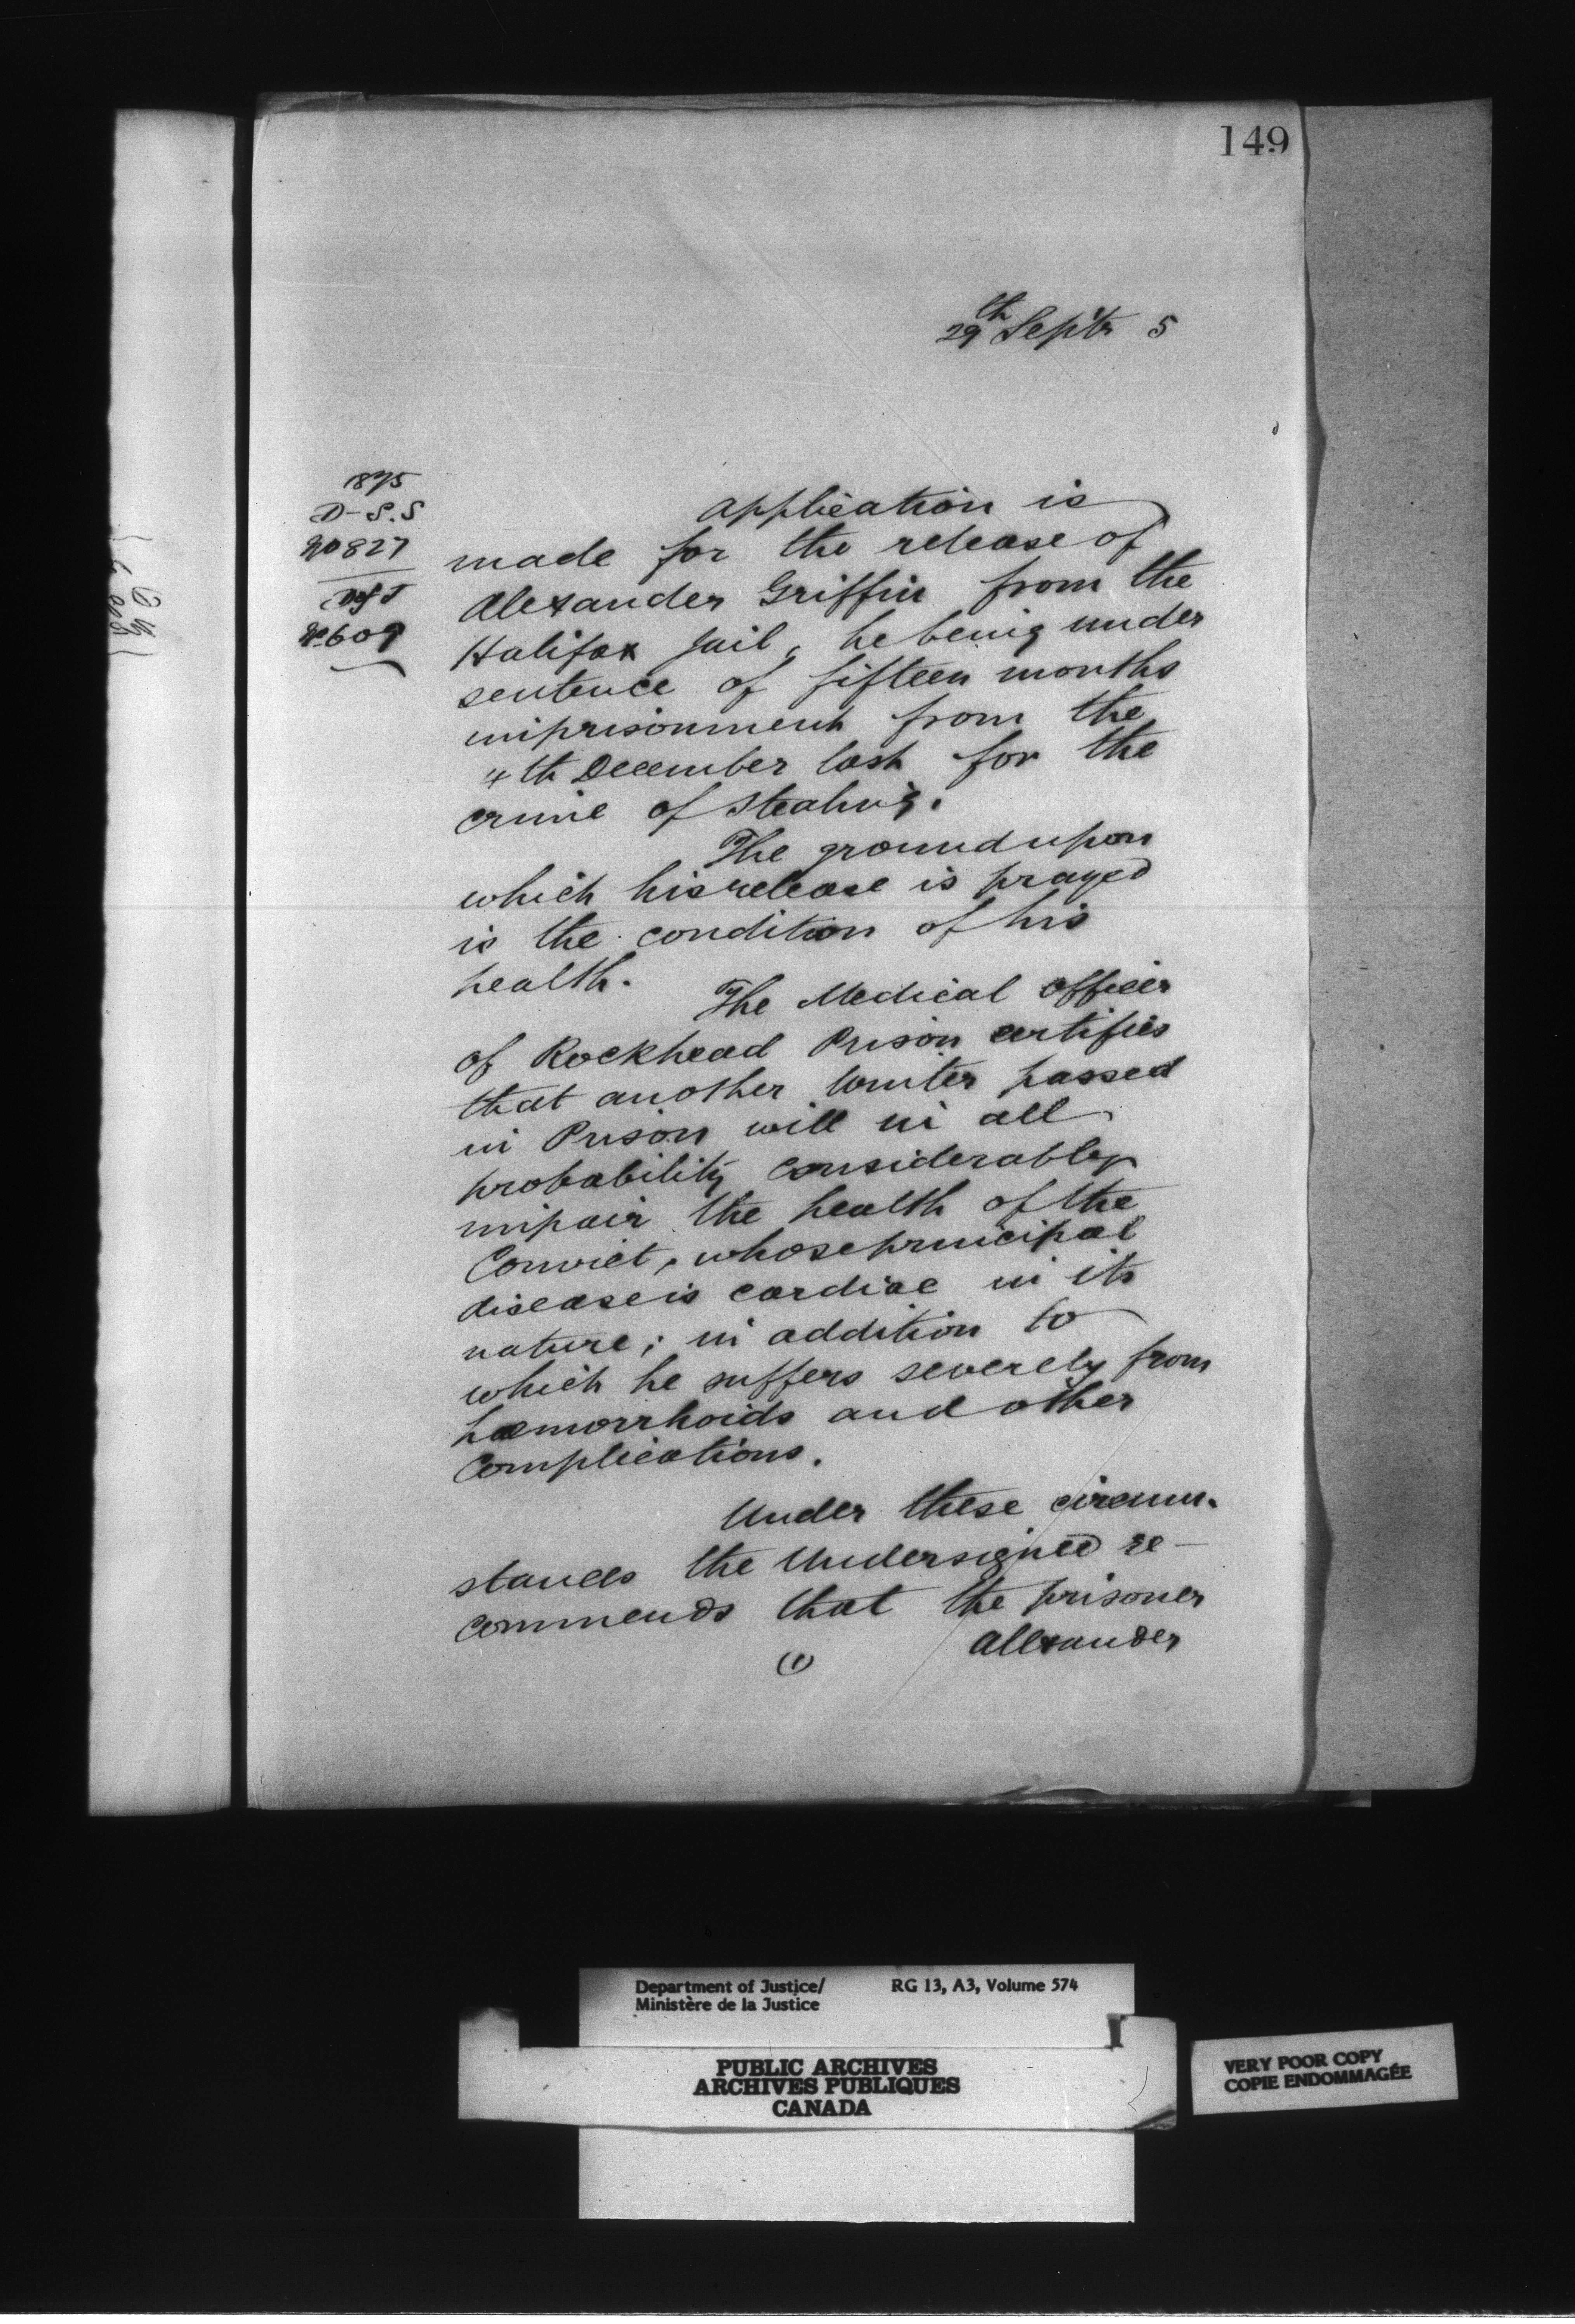 149
29th Septr 5
1875
D-S.S
No 827
D of J
No 609
Application is
made for the release of
Alexander Griffin from the
Halifax Jail, he being under
sentence of fifteen months
imprisonment from the
4th December last for the
crime of Stealing.
The ground upon
which his release is prayed
is the condition of his
health.
The Medical Officer
of Rockhead Prison certifies
that another Winter passed
in Prison will in all
probability considerably
impair the health of the
Convict, whose principal
disease is cardiac in its
nature; in addition to
which he suffers severely from
hæmorrhoids and other
Complications.
Under these circum-
stances the Undersigned re-
commends that the prisoner
(1)
Alexander
Department of Justice/ RG 13, A3, Volume 574
Ministère de la Justice
PUBLIC ARCHIVES
ARCHIVES PUBLIQUES
CANADA
VERY POOR COPY
COPIE ENDOMMAGÉE